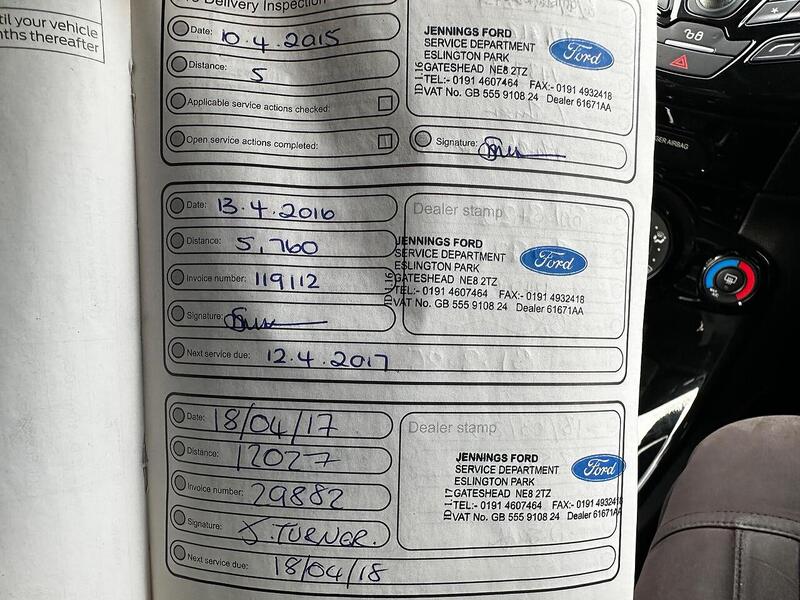 til your vehicle
nths thereafter
Delivery Inspection
Date: 10.4.2015
Distance: 5
Applicable service actions checked:
Open service actions completed:
JENNINGS FORD
SERVICE DEPARTMENT
ESLINGTON PARK
GATESHEAD NE8 2TZ
TEL:- 0191 4607464 FAX:- 0191 4932418
VAT No. GB 555 9108 24 Dealer 61671AA
ID 1.16
Ford
Signature:
Date: 13.4.2016
Distance: 5,760
Invoice number: 119112
Signature:
Next service due: 12.4.2017
Dealer stamp
JENNINGS FORD
SERVICE DEPARTMENT
ESLINGTON PARK
GATESHEAD NE8 2TZ
TEL:- 0191 4607464 FAX:- 0191 4932418
VAT No. GB 555 9108 24 Dealer 61671AA
ID 1.16
Ford
Date: 18/04/17
Distance: 12027
Invoice number: 29882
Signature: J. TURNER.
Next service due: 18/04/18
Dealer stamp
JENNINGS FORD
SERVICE DEPARTMENT
ESLINGTON PARK
GATESHEAD NE8 2TZ
TEL:- 0191 4607464 FAX:- 0191 4932418
VAT No. GB 555 9108 24 Dealer 61671AA
ID 1.17
Ford
GER AIRBAG